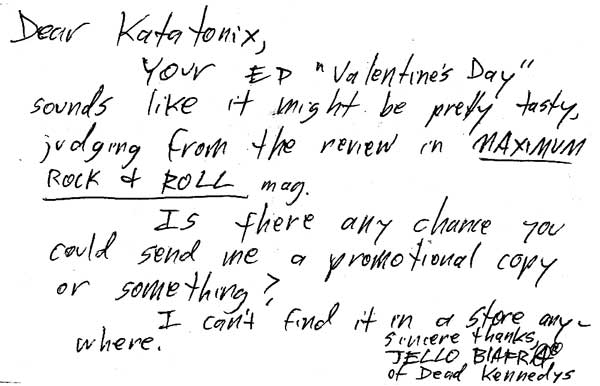 Dear Katatonix,
Your EP "Valentine's Day"
sounds like it might be pretty tasty,
judging from the review in MAXIMUM
ROCK & ROLL mag.
Is there any chance you
could send me a promotional copy
or something?
I can't find it in a store any-
where.
sincere thanks,
JELLO BIAFRA
of Dead Kennedys